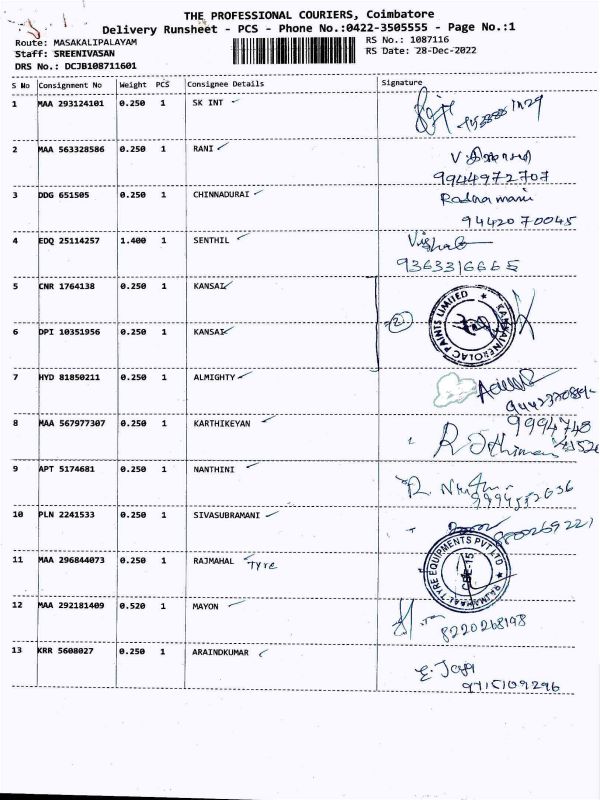 THE PROFESSIONAL COURIERS, Coimbatore
Delivery Runsheet - PCS - Phone No.:0422-3505555 - Page No.:1
Route: MASAKALIPALAYAM
RS No.: 1087116
Staff: SREENIVASAN
RS Date: 28-Dec-2022
DRS No.: DCJB108711601
S No Consignment No Weight PCS Consignee Details Signature
1 MAA 293124101 0.250 1 SK INT
2 MAA 563328586 0.250 1 RANI
9944972707
3 DDG 651505 0.250 1 CHINNADURAI Radhamani
9442070045
4 EDQ 25114257 1.400 1 SENTHIL Vishal
9363316665
5 CNR 1764138 0.250 1 KANSAI
KANSAI NEROLAC PAINTS LIMITED
2
6 DPI 10351956 0.250 1 KANSAI
7 HYD 81850211 0.250 1 ALMIGHTY
8 MAA 567977307 0.250 1 KARTHIKEYAN 9994748
9 APT 5174681 0.250 1 NANTHINI
10 PLN 2241533 0.250 1 SIVASUBRAMANI
11 MAA 296844073 0.250 1 RAJMAHAL Tyre
RAJMAHAAL TYRE EQUIPMENTS PVT LTD
CBE-15
12 MAA 292181409 0.520 1 MAYON
8220268198
13 KRR 5608027 0.250 1 ARAINDKUMAR
E. Jaya
9715109296